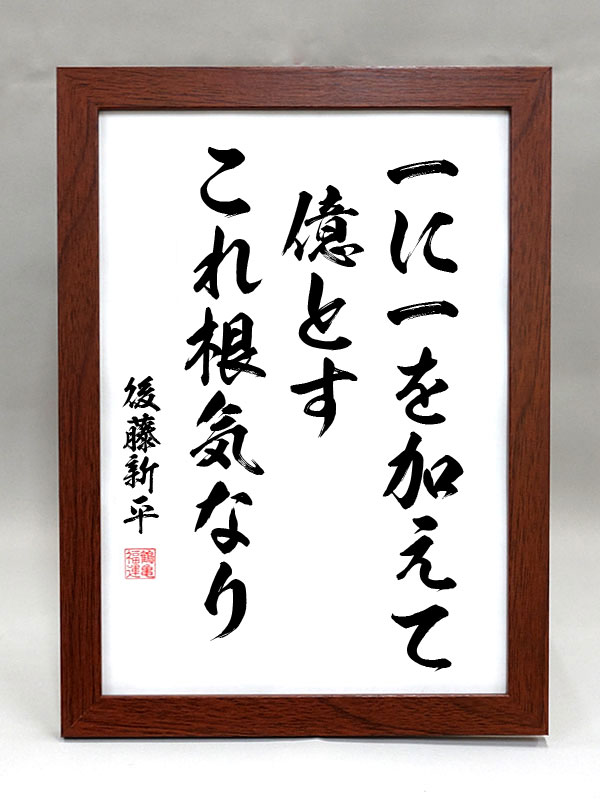 一に一を加えて
億とす
これ根気なり
後藤新平
鶴亀
福運